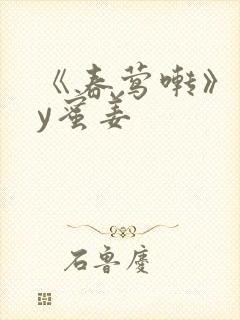 《春莺啭》
y蜜姜
石鲁庆